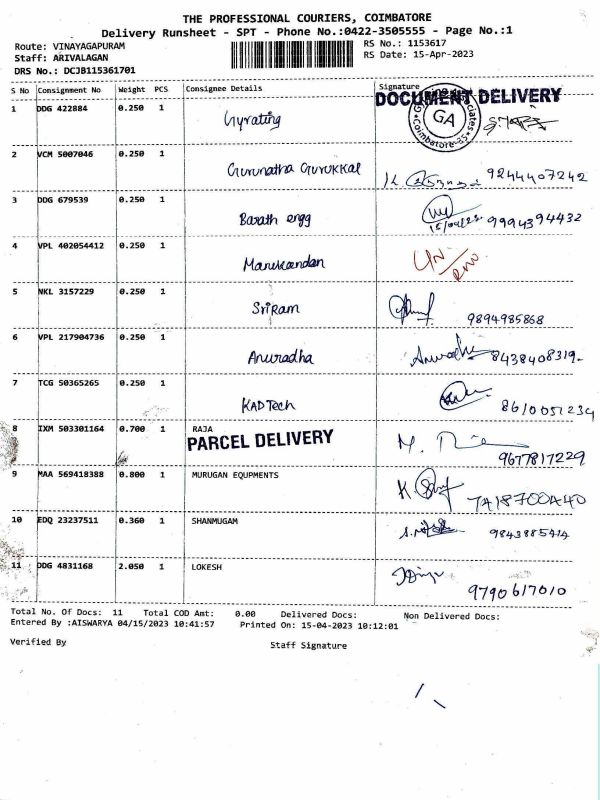 THE PROFESSIONAL COURIERS, COIMBATORE
Delivery Runsheet - SPT - Phone No.:0422-3505555 - Page No.:1
Route: VINAYAGAPURAM
RS No.: 1153617
Staff: ARIVALAGAN
RS Date: 15-Apr-2023
DRS No.: DCJB115361701
S No Consignment No Weight PCS Consignee Details Signature
DOCUMENT DELIVERY
1 DDG 422884 0.250 1 Gyrating
GA
Coimbatore-35
2 VCM 5007046 0.250 1 Gurunatha Gurukkal 9244407242
3 DDG 679539 0.250 1 Barath engg 15/04/23 9994394432
4 VPL 402054412 0.250 1 Manikandan
5 NKL 3157229 0.250 1 SriRam 9894985868
6 VPL 217904736 0.250 1 Anuradha 8438408319
7 TCG 50365265 0.250 1 KAD Tech 8610051234
8 IXM 503301164 0.700 1 RAJA 9677817229
PARCEL DELIVERY
9 MAA 569418388 0.800 1 MURUGAN EQUPMENTS
10 EDQ 23237511 0.360 1 SHANMUGAM 9843885414
11 DDG 4831168 2.050 1 LOKESH 9790617010
Total No. Of Docs: 11 Total COD Amt: 0.00 Delivered Docs: Non Delivered Docs:
Entered By :AISWARYA 04/15/2023 10:41:57 Printed On: 15-04-2023 10:12:01
Verified By
Staff Signature